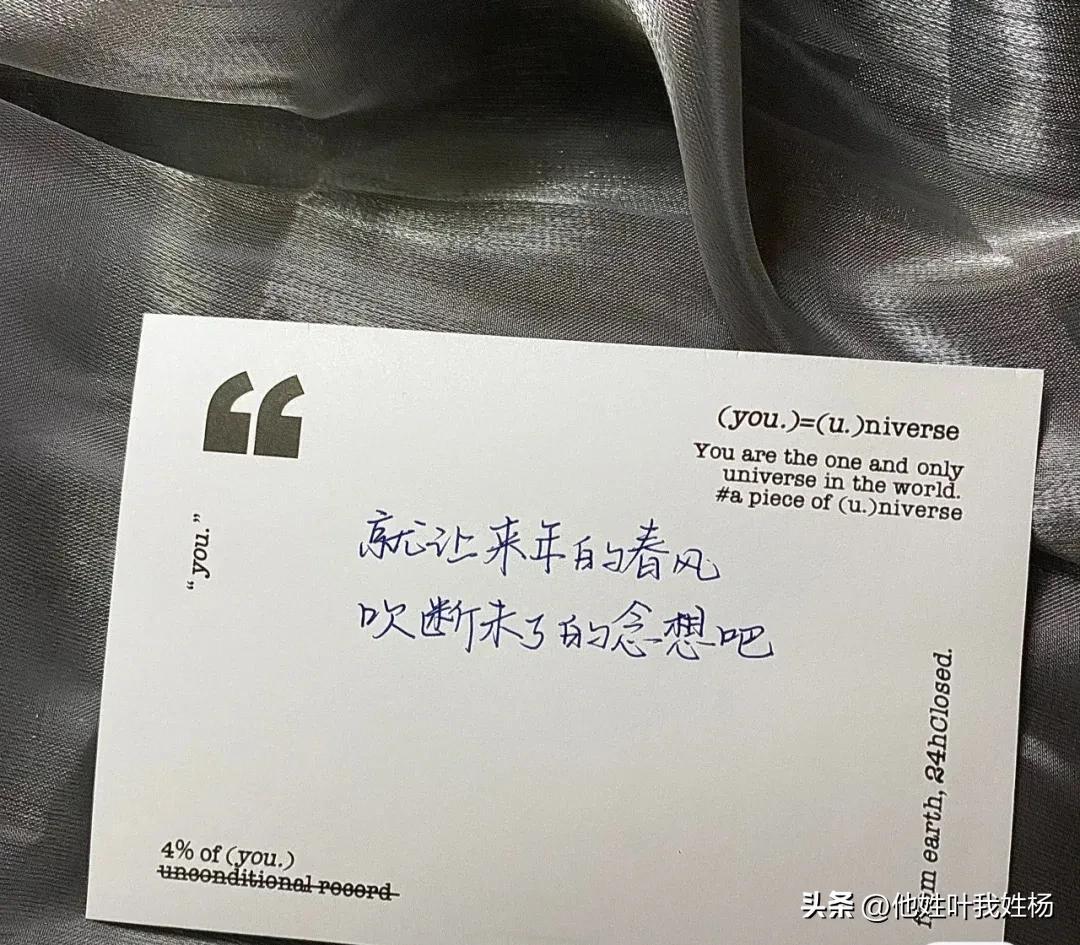 “
(you.)=(u.)niverse
You are the one and only
universe in the world.
#a piece of (u.)niverse
“you.”
就让来年的春风
吹断未了的念想吧
from earth, 24hClosed.
4% of (you.)
unconditional record
头条 @他姓叶我姓杨